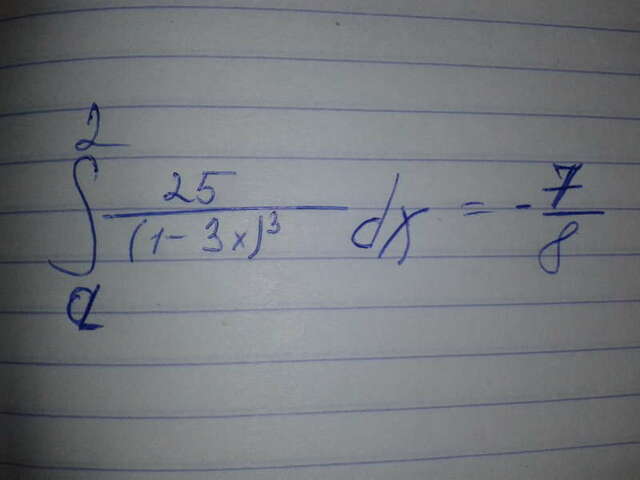 ∫_a^2 25/(1-3x)^3 dx = -7/8